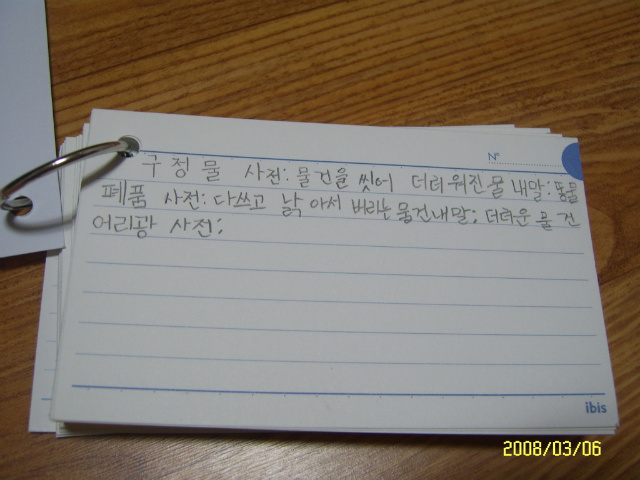 N°
구정물 사전: 물건을 씻어 더러워진물 내말: 똥물
페품 사전: 다쓰고 낡아서 버리는 물건내말: 더러운 물건
어리광 사전:
ibis
2008/03/06